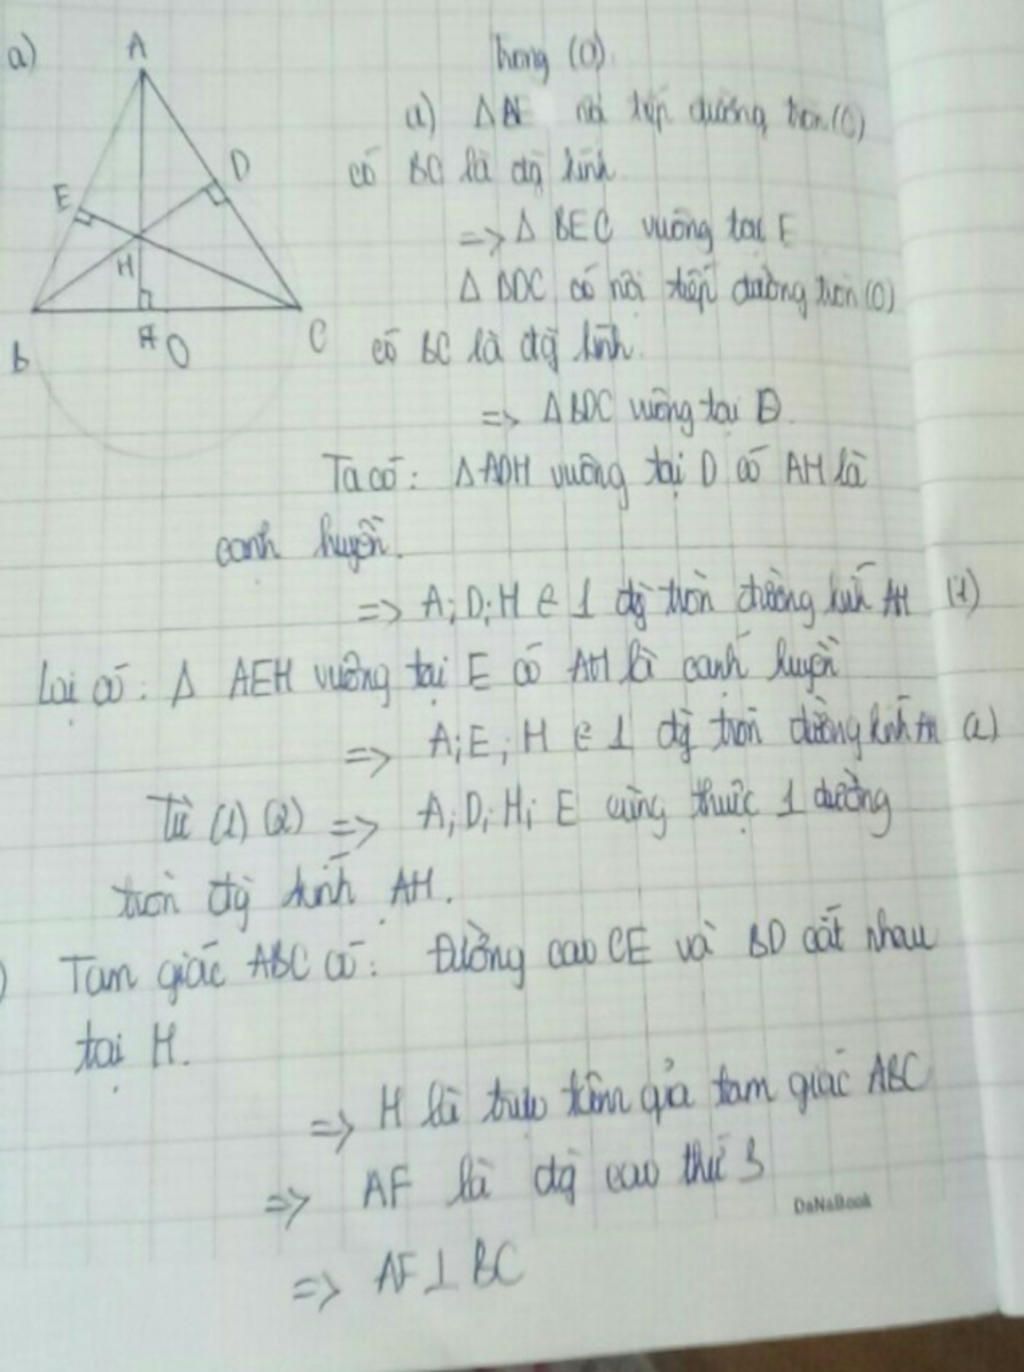 a)
A
D
E
H
B
O
C
Trong (O)
a) Δ nội tiếp đường tròn (O)
có BC là đg kính
=> Δ BEC vuông tại E
Δ BDC có nội tiếp đường tròn (O)
có BC là đg kính.
=> Δ BDC vuông tại D.
Ta có: Δ ADH vuông tại D có AH là
cạnh huyền.
=> A; D; H ∈ 1 đg tròn đường kính AH (1)
Lại có: Δ AEH vuông tại E có AH là cạnh huyền
=> A; E; H ∈ 1 đg tròn đường kính AH (2)
Từ (1) (2) => A; D; H; E cùng thuộc 1 đường
tròn đg kính AH.
) Tam giác ABC có: Đường cao CE và BD cắt nhau
tại H.
=> H là trực tâm của tam giác ABC
=> AF là đg cao thứ 3
DaNaBook
=> AF ⊥ BC